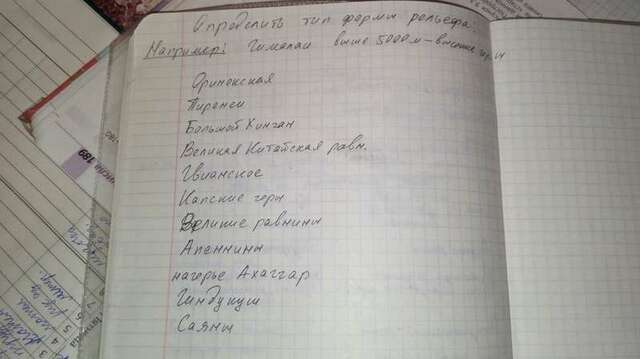 Определить тип формы рельефа.
Например: Гималаи выше 5000м – высокие горы
Оринокская
Пиренеи
Большой Хинган
Великая Китайская равн.
Гвианское
Капские горы
Великие равнины
Апеннины
нагорье Ахаггар
Гиндукуш
Саяны
189